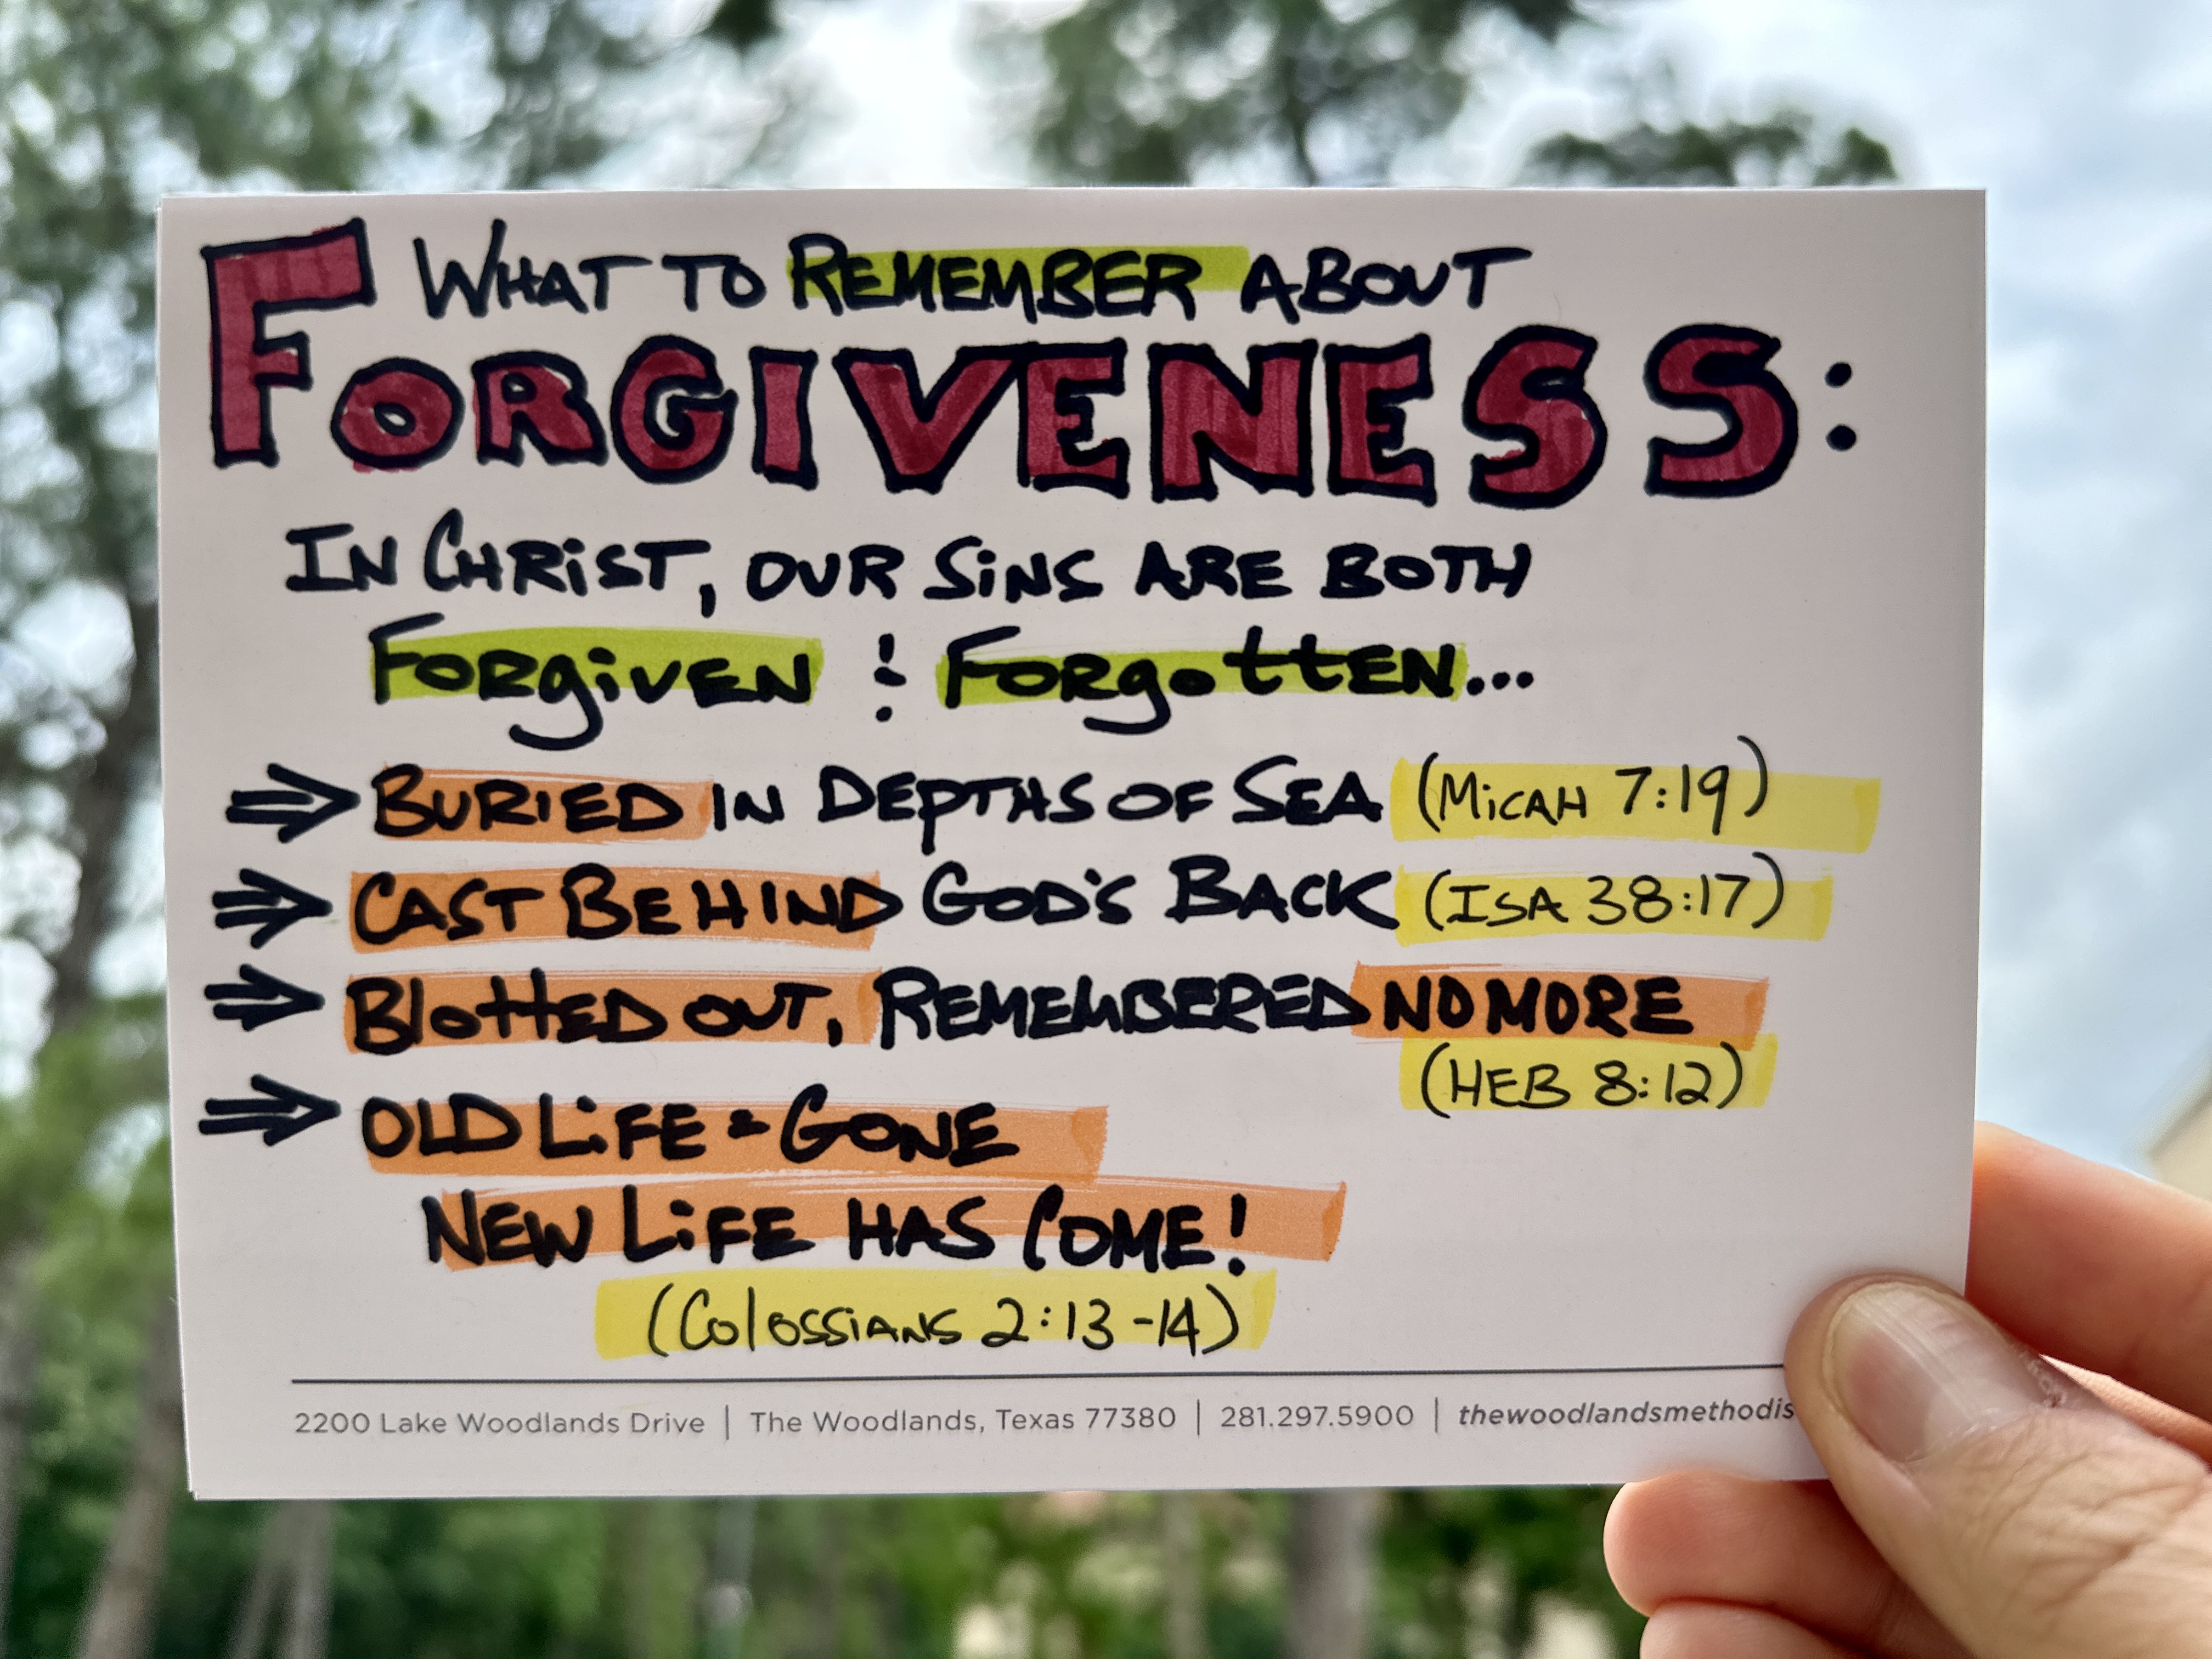 WHAT TO REMEMBER ABOUT
FORGIVENESS:
IN CHRiST, OUR SiNS ARE BOTH
FORgiVEN & FORgottEN...
⇒ BURIED IN DEPTHS OF SEA (MiCAH 7:19)
⇒ CAST BEHIND GOD'S BACK (ISA 38:17)
⇒ BlottED OUT, REMEMBERED NO MORE
(HEB 8:12)
⇒ OLD LiFE & GONE
NEW LiFE HAS COME!
(ColOSSiANS 2:13-14)
2200 Lake Woodlands Drive | The Woodlands, Texas 77380 | 281.297.5900 | thewoodlandsmethodis